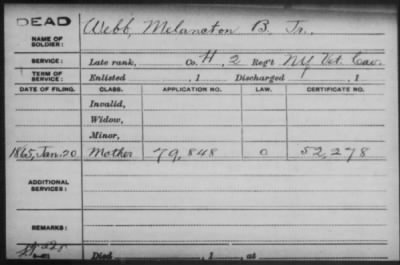 DEAD
NAME OF SOLDIER: Webb, Melancton B. Jr.
SERVICE: Late rank, Co. H, 2 Reg't NY Vet. Cav.
TERM OF SERVICE: Enlisted , 1 Discharged , 1
DATE OF FILING. CLASS. APPLICATION NO. LAW. CERTIFICATE NO.
Invalid,
Widow,
Minor,
1865, Jan. 20 Mother 79,848 0 52,278
ADDITIONAL SERVICES:
REMARKS:
Died , 1 , at